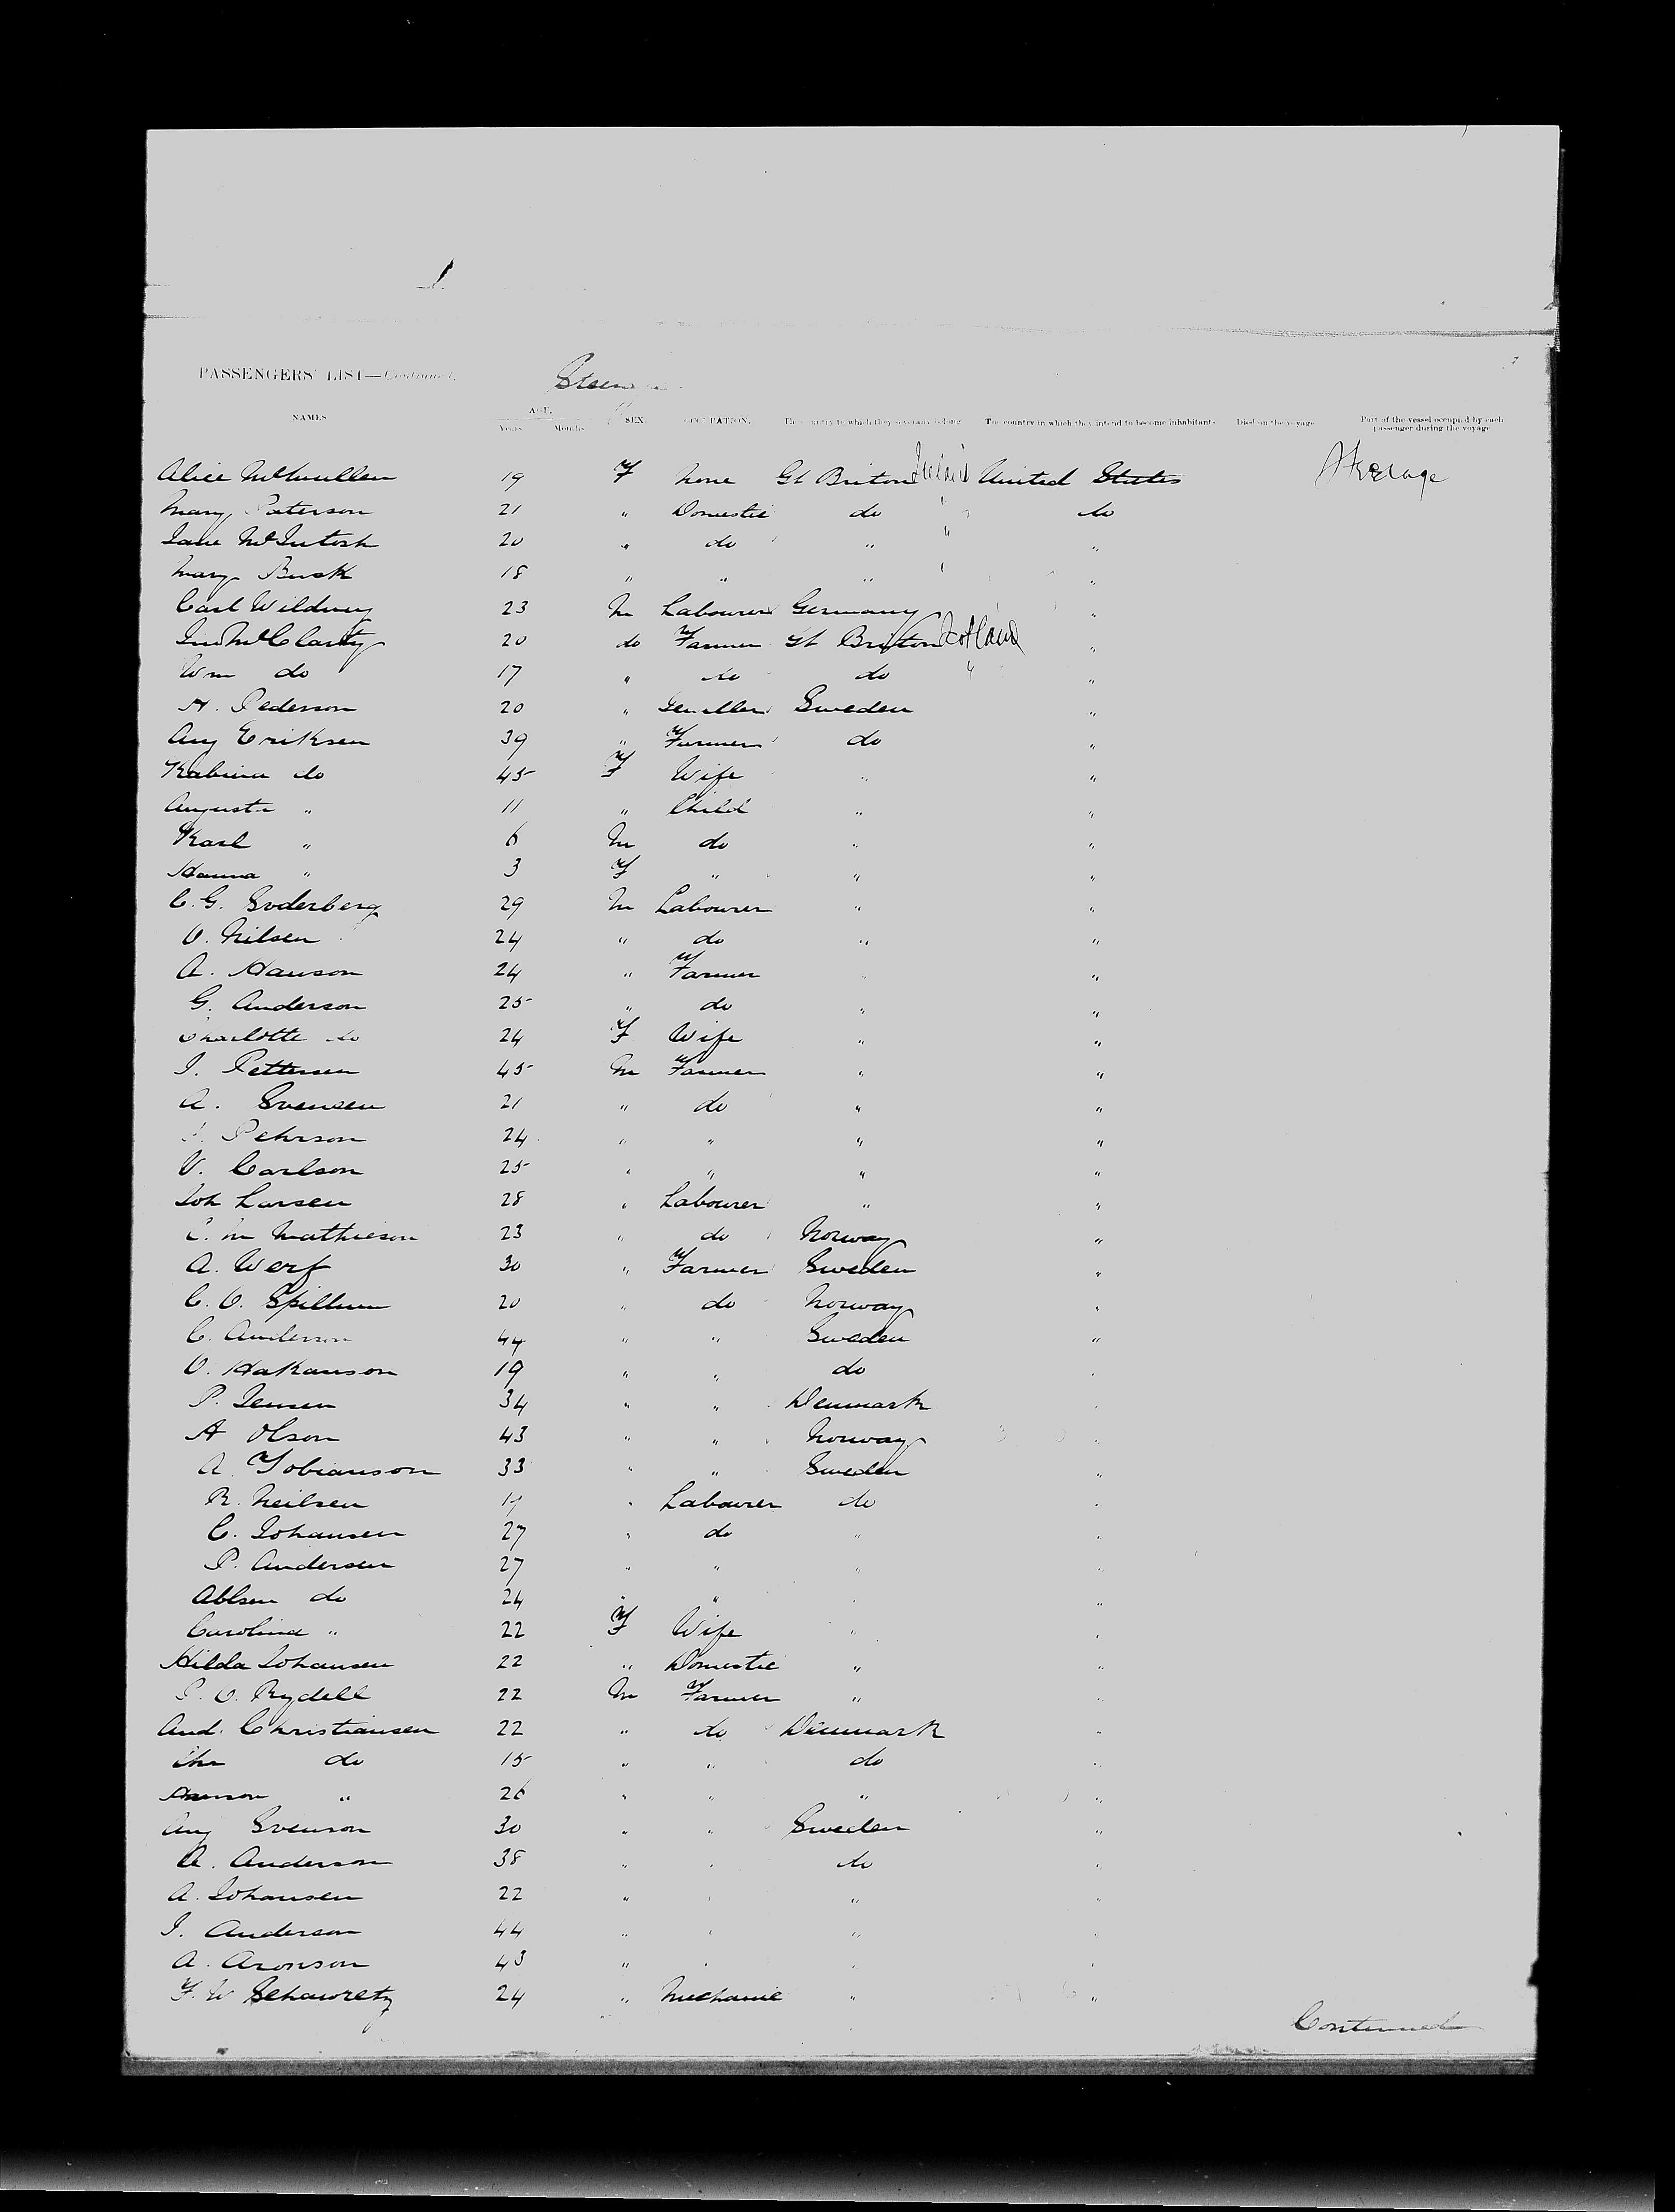 PASSENGERS' LIST—Continued.
NAMES AGE. Years Months SEX OCCUPATION. The country to which they severally belong The country in which they intend to become inhabitants Died on the voyage Part of the vessel occupied by each passenger during the voyage
Alice McMullen 19 F None Gt Briton Ireland United States Steerage
Mary Paterson 21 " Domestic do " do
Jane McIntosh 20 " do " " "
Mary Busk 18 " " " "
Carl 23 M Labourer Germany "
McClarty 20 do Farmer Gt Briton Scotland "
Wm do 17 " do do " "
A. Pederson 20 " Sweden "
Aug Eriksen 39 " Farmer do "
do 45 F Wife " "
Augusta " 11 " Child " "
Karl " 6 M do " "
Hanna " 3 F " " "
C. G. Soderberg 29 M Labourer " "
O. Nilsen 24 " do " "
A. Hanson 24 " Farmer " "
G. Anderson 25 " do " "
Charlotte do 24 F Wife " "
J. Pettersen 45 M Farmer " "
A. Svensen 21 " do " "
Pehrson 24 " " " "
V. Carlson 25 " " " "
Joh Larsen 28 " Labourer " "
C. M Mathieson 23 " do Norway "
A. Werf 30 " Farmer Sweden "
C. O. Spillum 20 " do Norway "
C. Anderson 44 " " Sweden "
O. Hakanson 19 " " do "
P. Jensen 34 " " Denmark "
A Olson 43 " " Norway "
A. Tobianson 33 " " Sweden "
R. Neilsen 19 " Labourer do "
C. Johansen 27 " do " "
P. Andersen 27 " " " "
do 24 " " " "
Carolina " 22 F Wife " "
Hilda Johansen 22 " Domestic " "
P. O. Rydell 22 M Farmer " "
And. Christiansen 22 " do Denmark "
Chr do 15 " " do "
" 26 " " " "
Aug Svenson 30 " " Sweden "
A. Anderson 38 " " do "
A. Johansen 22 " " " "
J. Anderson 44 " " " "
A. Aronson 43 " " " "
F. W Schawretz 24 " Mechanic " "
Continued